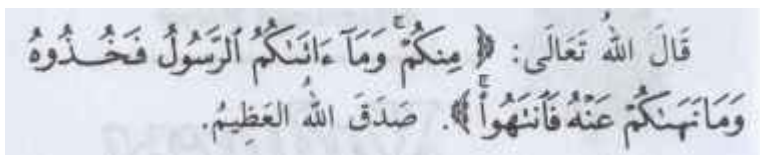 قَالَ اللهُ تَعَالَى: ﴿ مِنكُمْ ۚ وَمَآ ءَاتَىٰكُمُ ٱلرَّسُولُ فَخُـذُوهُ
وَمَا نَهَىٰكُمْ عَنْهُ فَٱنتَهُوا۟ ۚ ﴾. صَدَقَ اللهُ العَظِيمُ.